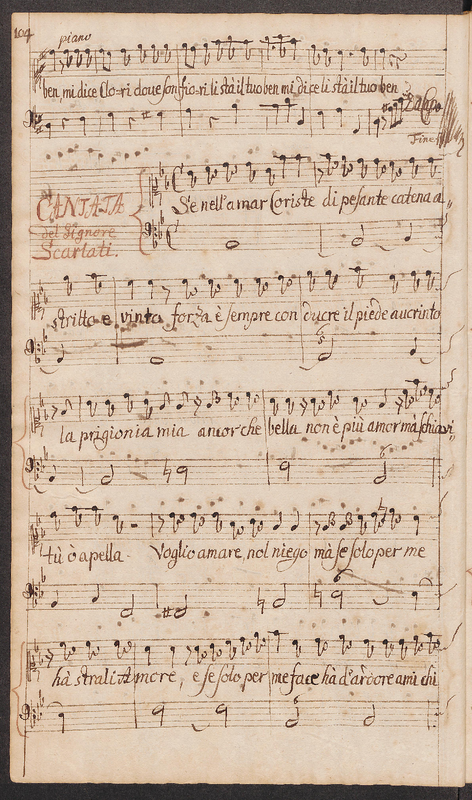 104
piano
ben mi dice Clo-ri doue son fio-ri li stà il tuo ben mi dice li stà il tuo ben
Da Capo
Fine
CANTATA
del Signore
Scarlati.
Se nell'amar Coriste di pesante catena a
stritto e vinto forza è sempre con ducre il piede aucrinto
la prigionia mia ancor che bella non è più amor mà schiavi
tù ò apella - Voglio amare, nol niego mà se solo per me
hà strali Amore, e se solo per me face hà d'ardore ami chi